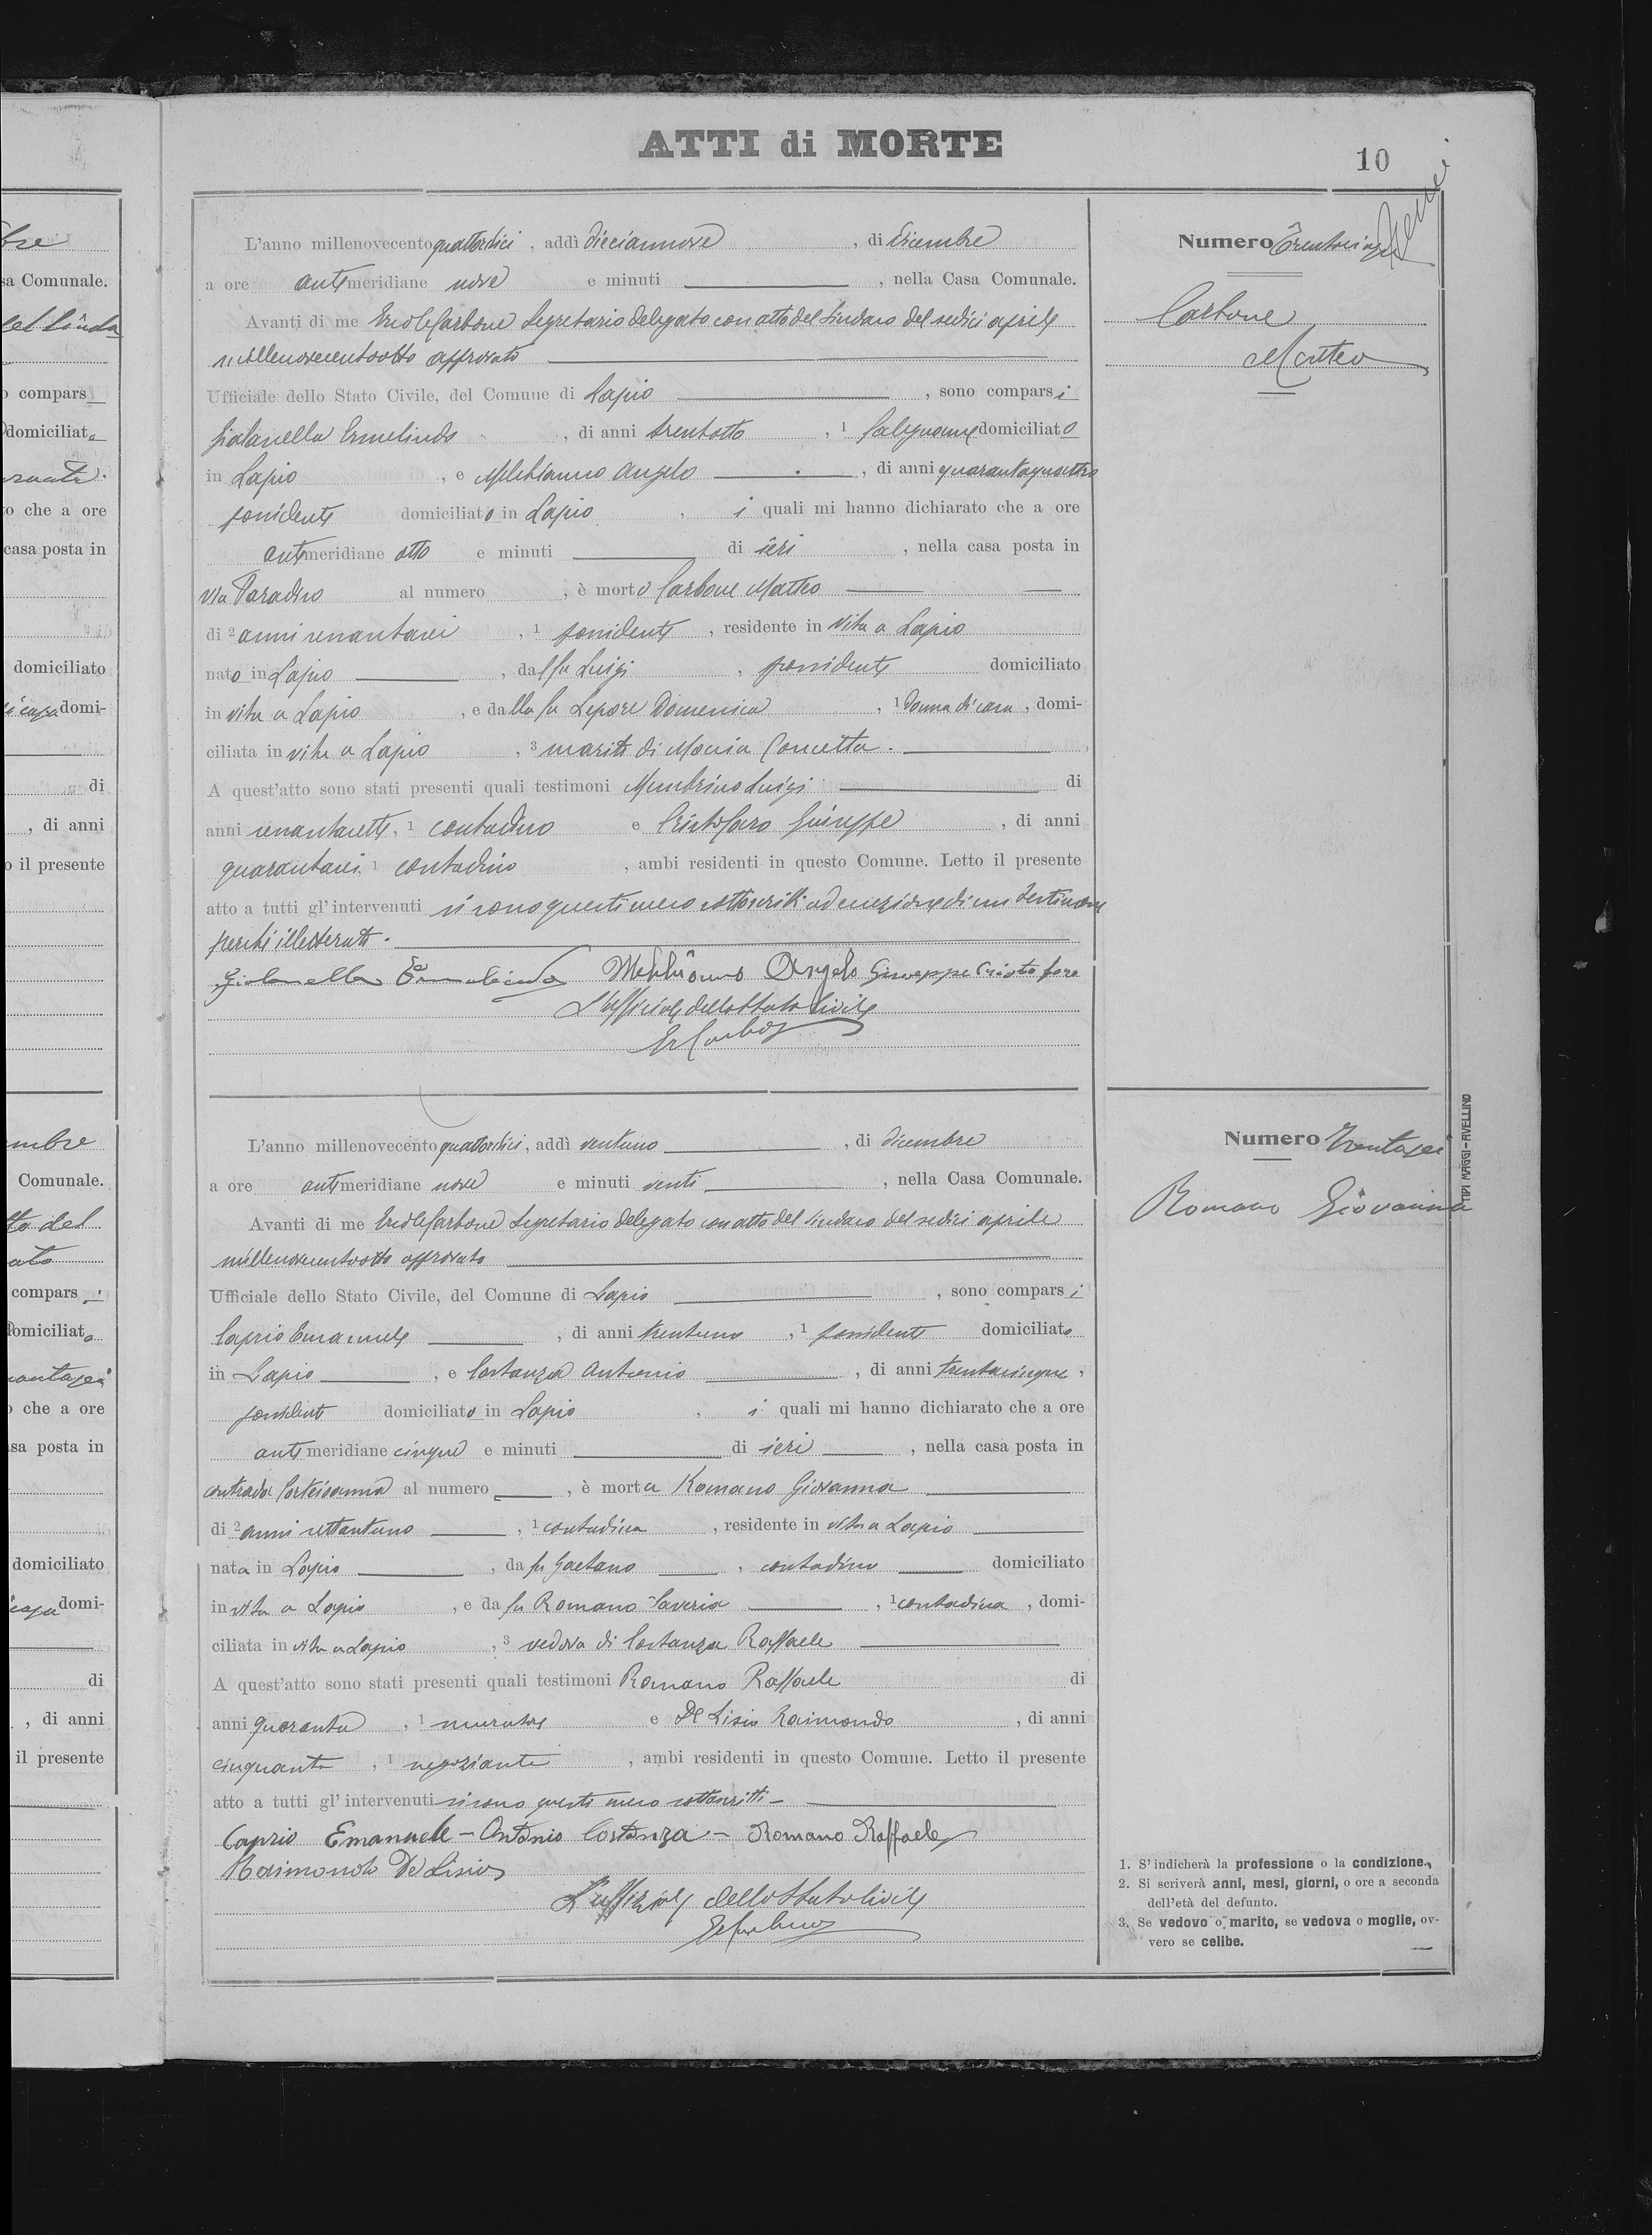 ATTI di MORTE
10
L'anno millenovecentoquattordici, addì diciannove, di Dicembre
a ore antimeridiane nove e minuti, nella Casa Comunale.
Avanti di me Ercole Carbone Segretario delegato con atto del Sindaco del sedici aprile
millenovecentootto approvato
Ufficiale dello Stato Civile, del Comune di Lapio, sono comparsi
Gialanella Ermelindo, di anni trentotto, 1 falegname domiciliato
in Lapio, e Melchianno Angelo, di anni quarantaquattro
possidente domiciliato in Lapio, i quali mi hanno dichiarato che a ore
antimeridiane otto e minuti di ieri, nella casa posta in
via Paradiso al numero, è morto Carbone Matteo
di 2 anni, 1 possidente, residente in vita a Lapio
nato in Lapio, dal fu Luigi, possidente domiciliato
in vita a Lapio, e dalla fu Lepore Domenica, 1 donna di casa, domi-
ciliata in vita a Lapio, 3 marito di Concetta.
A quest'atto sono stati presenti quali testimoni Membrino Luigi di
anni, 1 contadino e Cristofaro Giuseppe, di anni
quarantasei 1 contadino, ambi residenti in questo Comune. Letto il presente
atto a tutti gl'intervenuti si sono questi meco sottoscritti ad eccezione di un testimone
perché illetterato.
Gialanella Ermelindo Melchionno Angelo Giuseppe Cristofaro
L'ufficiale dello Stato Civile
Numero Trentacinque
Carbone
Matteo
L'anno millenovecentoquattordici, addì ventuno, di dicembre
a ore antimeridiane nove e minuti venti, nella Casa Comunale.
Avanti di me Ercole Carbone Segretario delegato con atto del Sindaco del sedici aprile
millenovecentootto approvato
Ufficiale dello Stato Civile, del Comune di Lapio, sono comparsi
Caprio Emanuele, di anni trentuno, 1 possidente domiciliato
in Lapio, e Costanza Antonio, di anni trentacinque,
possidente domiciliato in Lapio, i quali mi hanno dichiarato che a ore
antimeridiane cinque e minuti di ieri, nella casa posta in
contrada al numero, è morta Romano Giovanna
di 2 anni settantuno, 1 contadina, residente in vita a Lapio
nata in Lapio, da fu Gaetano, contadino domiciliato
in vita a Lapio, e da fu Romano Saveria, 1 contadina, domi-
ciliata in vita a Lapio, 3 vedova di Costanza Raffaele
A quest'atto sono stati presenti quali testimoni Romano Raffaele di
anni quaranta, 1 muratore e De Lisio Raimondo, di anni
cinquanta, 1 negoziante, ambi residenti in questo Comune. Letto il presente
atto a tutti gl'intervenuti si sono questi meco sottoscritti -
Caprio Emanuele - Antonio Costanza - Romano Raffaele
Raimondo De Lisio
L'uffiziale dello Stato Civile
Numero Trentasei
Romano Giovanna
TIPI MAGGI - AVELLINO
1. S'indicherà la professione o la condizione.
2. Si scriverà anni, mesi, giorni, o ore a seconda
dell'età del defunto.
3. Se vedovo o marito, se vedova o moglie, ov-
vero se celibe.